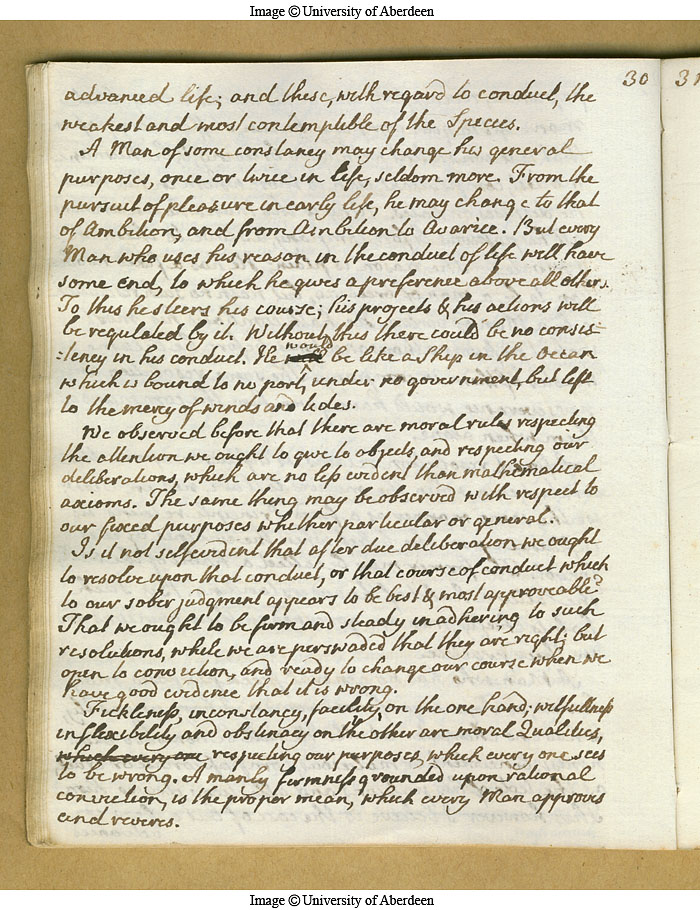 Image © University of Aberdeen
30
31
advanced life; and these, with regard to conduct, the
weakest and most contemptible of the Species.
A Man of some constancy may change his general
purposes, once or twice in life, seldom more. From the
pursuit of pleasure in early life, he may change to that
of Ambition, and from Ambition to Avarice. But every
Man who uses his reason in the conduct of life will have
some end, to which he gives a preference above all others.
To this he steers his course; his projects & his actions will
be regulated by it. Without this there could be no consis=
=tency in his conduct. He would be like a Ship in the Ocean
which is bound to no port, under no government, but left
to the mercy of winds and tides.
We observed before that there are moral rules respecting
the attention we ought to give to objects, and respecting our
deliberations, which are no less evident than mathematical
axioms. The same thing may be observed with respect to
our fixed purposes whether particular or general.
Is it not selfevident that after due deliberation we ought
to resolve upon that conduct, or that course of conduct which
to our sober judgment appears to be best & most approveable?
That we ought to be firm and steady in adhering to such
resolutions, while we are perswaded that they are right; but
open to conviction, and ready to change our course when we
have good evidence that it is wrong.
Fickleness, inconstancy, facility, on the one hand; wilfullness
inflexibility and obstinacy on the other are moral Qualities,
which every one respecting our purposes, which every one sees
to be wrong. A manly firmness grounded upon rational
conviction, is the proper mean, which every Man approves
and reveres.
Image © University of Aberdeen